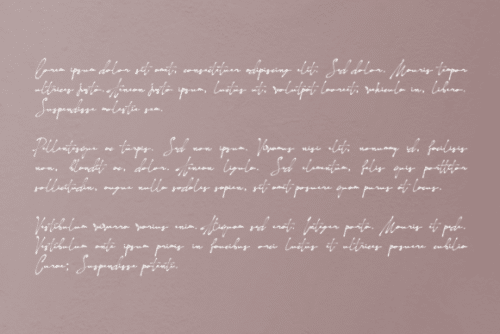 Lorem ipsum dolor sit amet, consectetuer adipiscing elit. Sed dolor. Mauris tempor
ultrices justo. Aenean justo ipsum, luctus ut, volutpat laoreet, vehicula in, libero.
Suspendisse molestie sem.
Pellentesque ac turpis. Sed non ipsum. Vivamus nisi elit, nonummy id, facilisis
non, blandit ac, dolor. Aenean ligula. Sed elementum, felis quis porttitor
sollicitudin, augue nulla sodales sapien, sit amet posuere quam purus at lacus.
Vestibulum viverra varius enim. Aliquam sed erat. Integer porta. Mauris et pede.
Vestibulum ante ipsum primis in faucibus orci luctus et ultrices posuere cubilia
Curae; Suspendisse potenti.